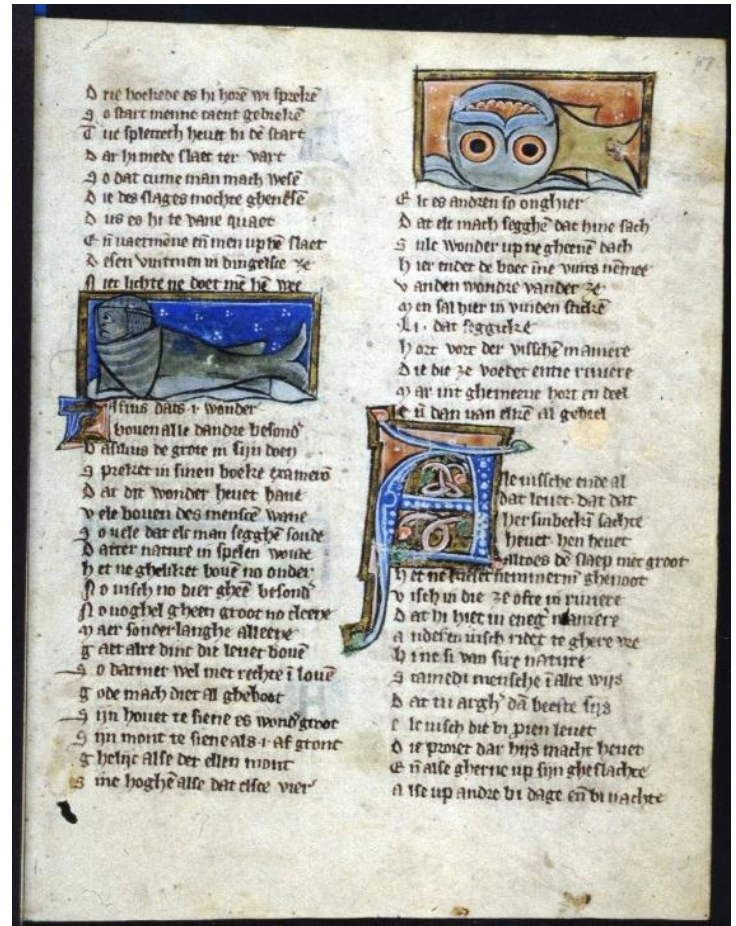 D rie hockede es hi horē wi sprekē
S o start menne taent gebrekē
T ue splettech hevet hi dē start
D ar hi mede slaet ter vart
S o dat cume man mach wesē
D ie des slages mochte ghenesē
D us es hi te vane quaet
E ñ vaetmēne eñ men up hē slaet
D esen vintmen in dingelsce ze
N iet lichte ne doet mē hē wee
astus dats .i. wonder
boven alle dandre besond
B asilius de grote in sijn doen
S preket in sinen boeke examerō
D at dit wonder hevet hant
V ele boven des menscē wane
S o vele dat elc man segghē soude
D atter nature in spelen woude
H et ne ghelijket bovē no onder
N o visch no dier gheē besond
N o voghel gheen groot no cleene
M aer sonderlanghe alleene
G aet alre dinc die levet bovē
S o datmer wel met rechte ī lovē
G ode mach diet al gheboot
S ijn hovet te siene es wondgroot
S ijn mont te siene als .i. af gront
G helijc alse der ellen mont
S ine hoghē alse dat elsce vier
E lc es andren so onghier
D at elc mach segghē dat hine sach
S ulc wonder up ne gheenē dach
H ier endet de boec ine vints nēmee
V anden wondre vander ze
M en sal hier in vinden stickē
Li. dat seggickē
H ort vort der visschē maniere
D ie die ze voedet entie riviere
M ar int ghemeene hort en deel
E ñ dan van elkē al geheel
Alle vissche ende al
dat levet. dat dat
hersinbeckī sachte
hevet. hen hevet
altoes dē slaep niet groot
H et ne kieset nemmermē ghenoot
V isch in die ze ofte in riviere
D at hi hiet in eneg maniere
A nderen visch niet te ghere vre
H i ne si van sire nature
S camedi mensche ī alre wijs
D at tu argh dā beeste sijs
E lc visch die bi proien levet
D ie proiet dar hijs macht hevet
E ñ alse gherne up sijn gheslachte
A lse up andre bi dage eñ bi nachte